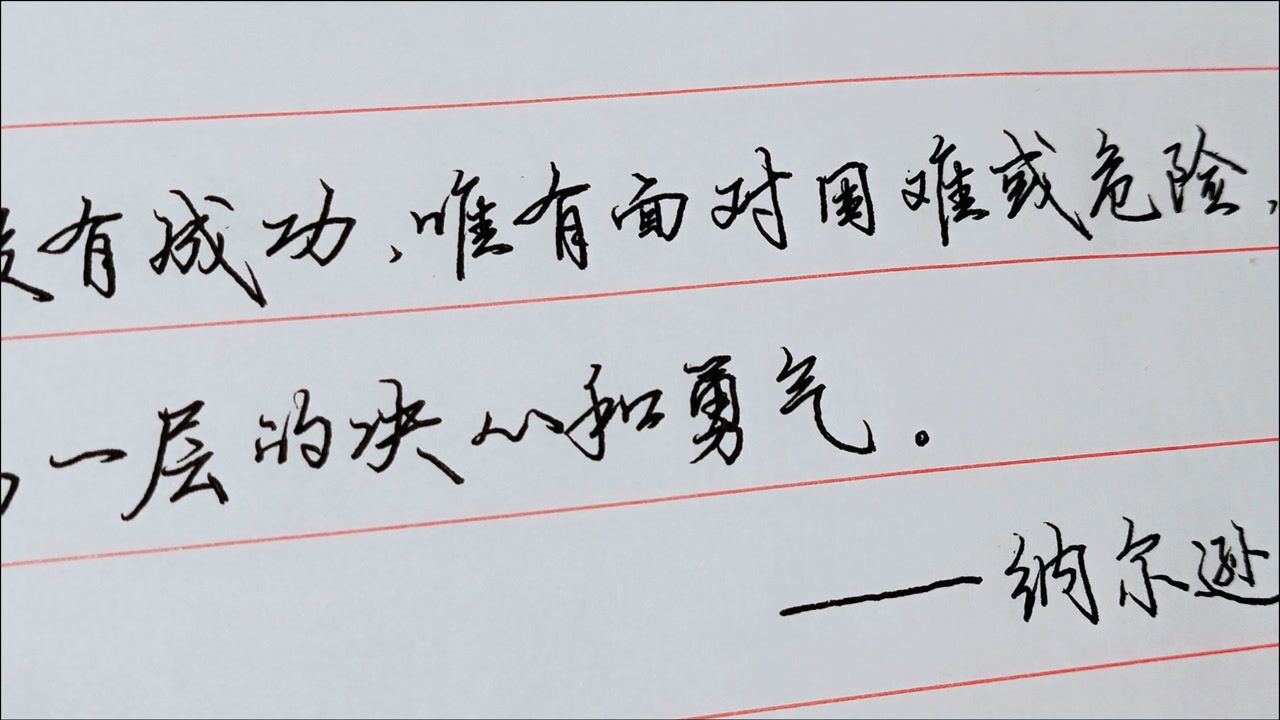 没有成功、唯有面对困难或危险,
一层的决心和勇气。
——纳尔逊